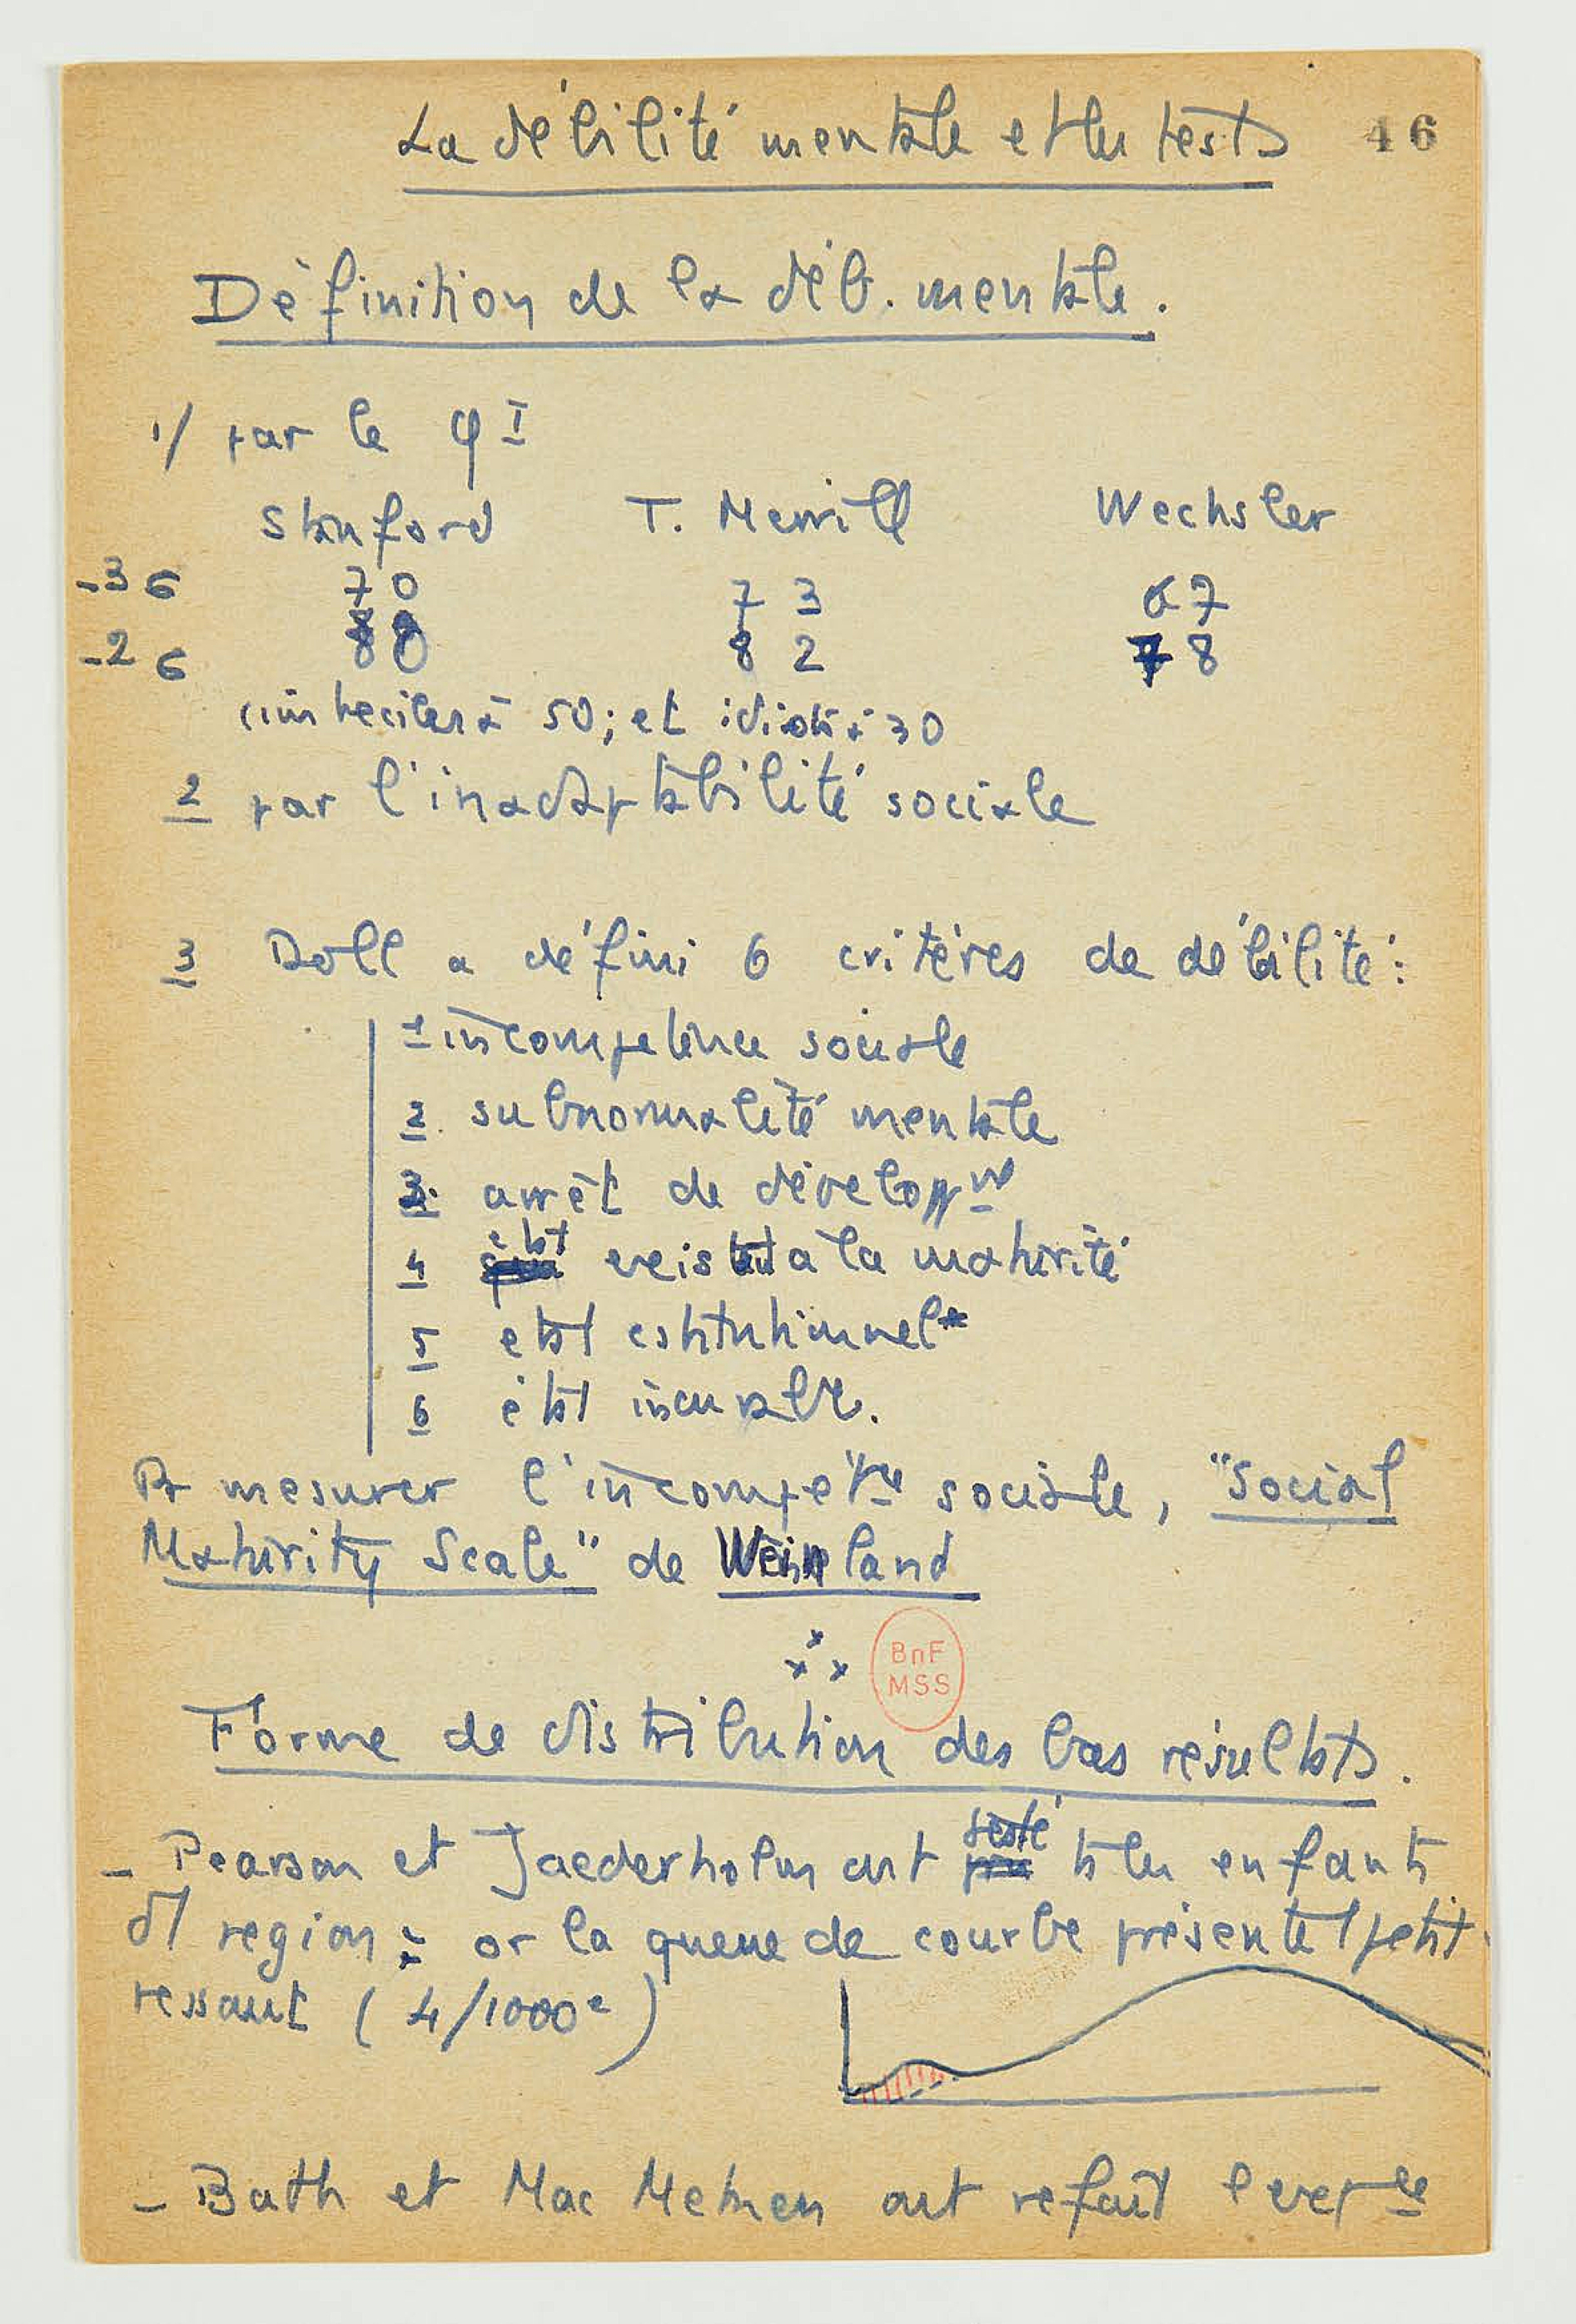 La débilité mentale et les tests 46
Définition de la déb. mentale.
1/ par le QI
Stanford T. Merrill Wechsler
-3σ 70 73 67
-2σ 80 82 78
(imbeciles à 50; et idiots à 30
2 par l'inadaptabilité sociale
3 Doll a défini 6 critères de débilité:
1 incompetence sociale
2. subnormalité mentale
3. arrêt de développt
4 état existant à la maturité
5 etat cstitutionnel
6 état incurable.
Pr mesurer l'incompétce sociale, "Social
Maturity Scale" de Weinland
BnF
MSS
Forme de distribution des bas résultats.
- Pearson et Jaederholm ont testé ts les enfants
d1 region: or la queue de courbe présente 1 petit
ressaut (4/1000e)
- Bath et Mac Metnen ont refait l'experce